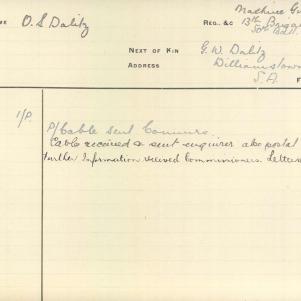 ME O. S. Dalitz
Machine Gu
REG. &C 13th Brigad
50th Batt
NEXT OF KIN G. W. Dalitz
ADDRESS Williamstown
S.A.
F
1/P. P/Cable sent Commrs.
Cable received & sent enquirer also postal
Further Information received Commissioners. Letters